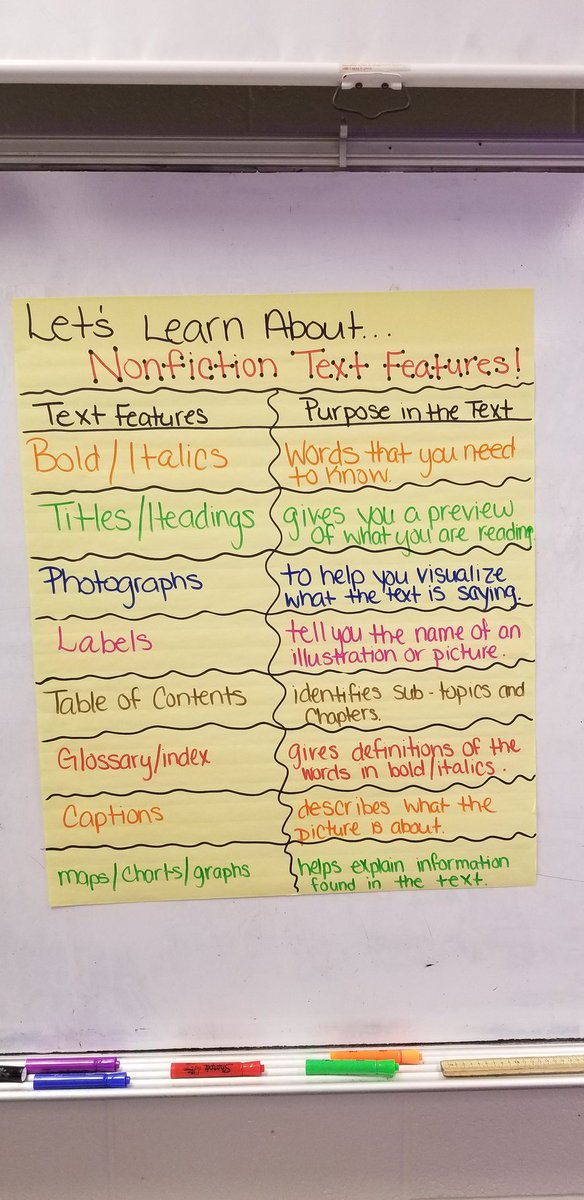 Let's Learn About...
Nonfiction Text Features!
Text Features
Purpose in the Text
Bold/Italics
Words that you need
to know.
Titles/Headings
gives you a preview
of what you are reading
Photographs
to help you visualize
what the text is saying.
Labels
tell you the name of an
illustration or picture.
Table of Contents
identifies sub-topics and
Chapters.
Glossary/index
gives definitions of the
words in bold/italics.
Captions
describes what the
picture is about.
maps/charts/graphs
helps explain information
found in the text.
Sharpie